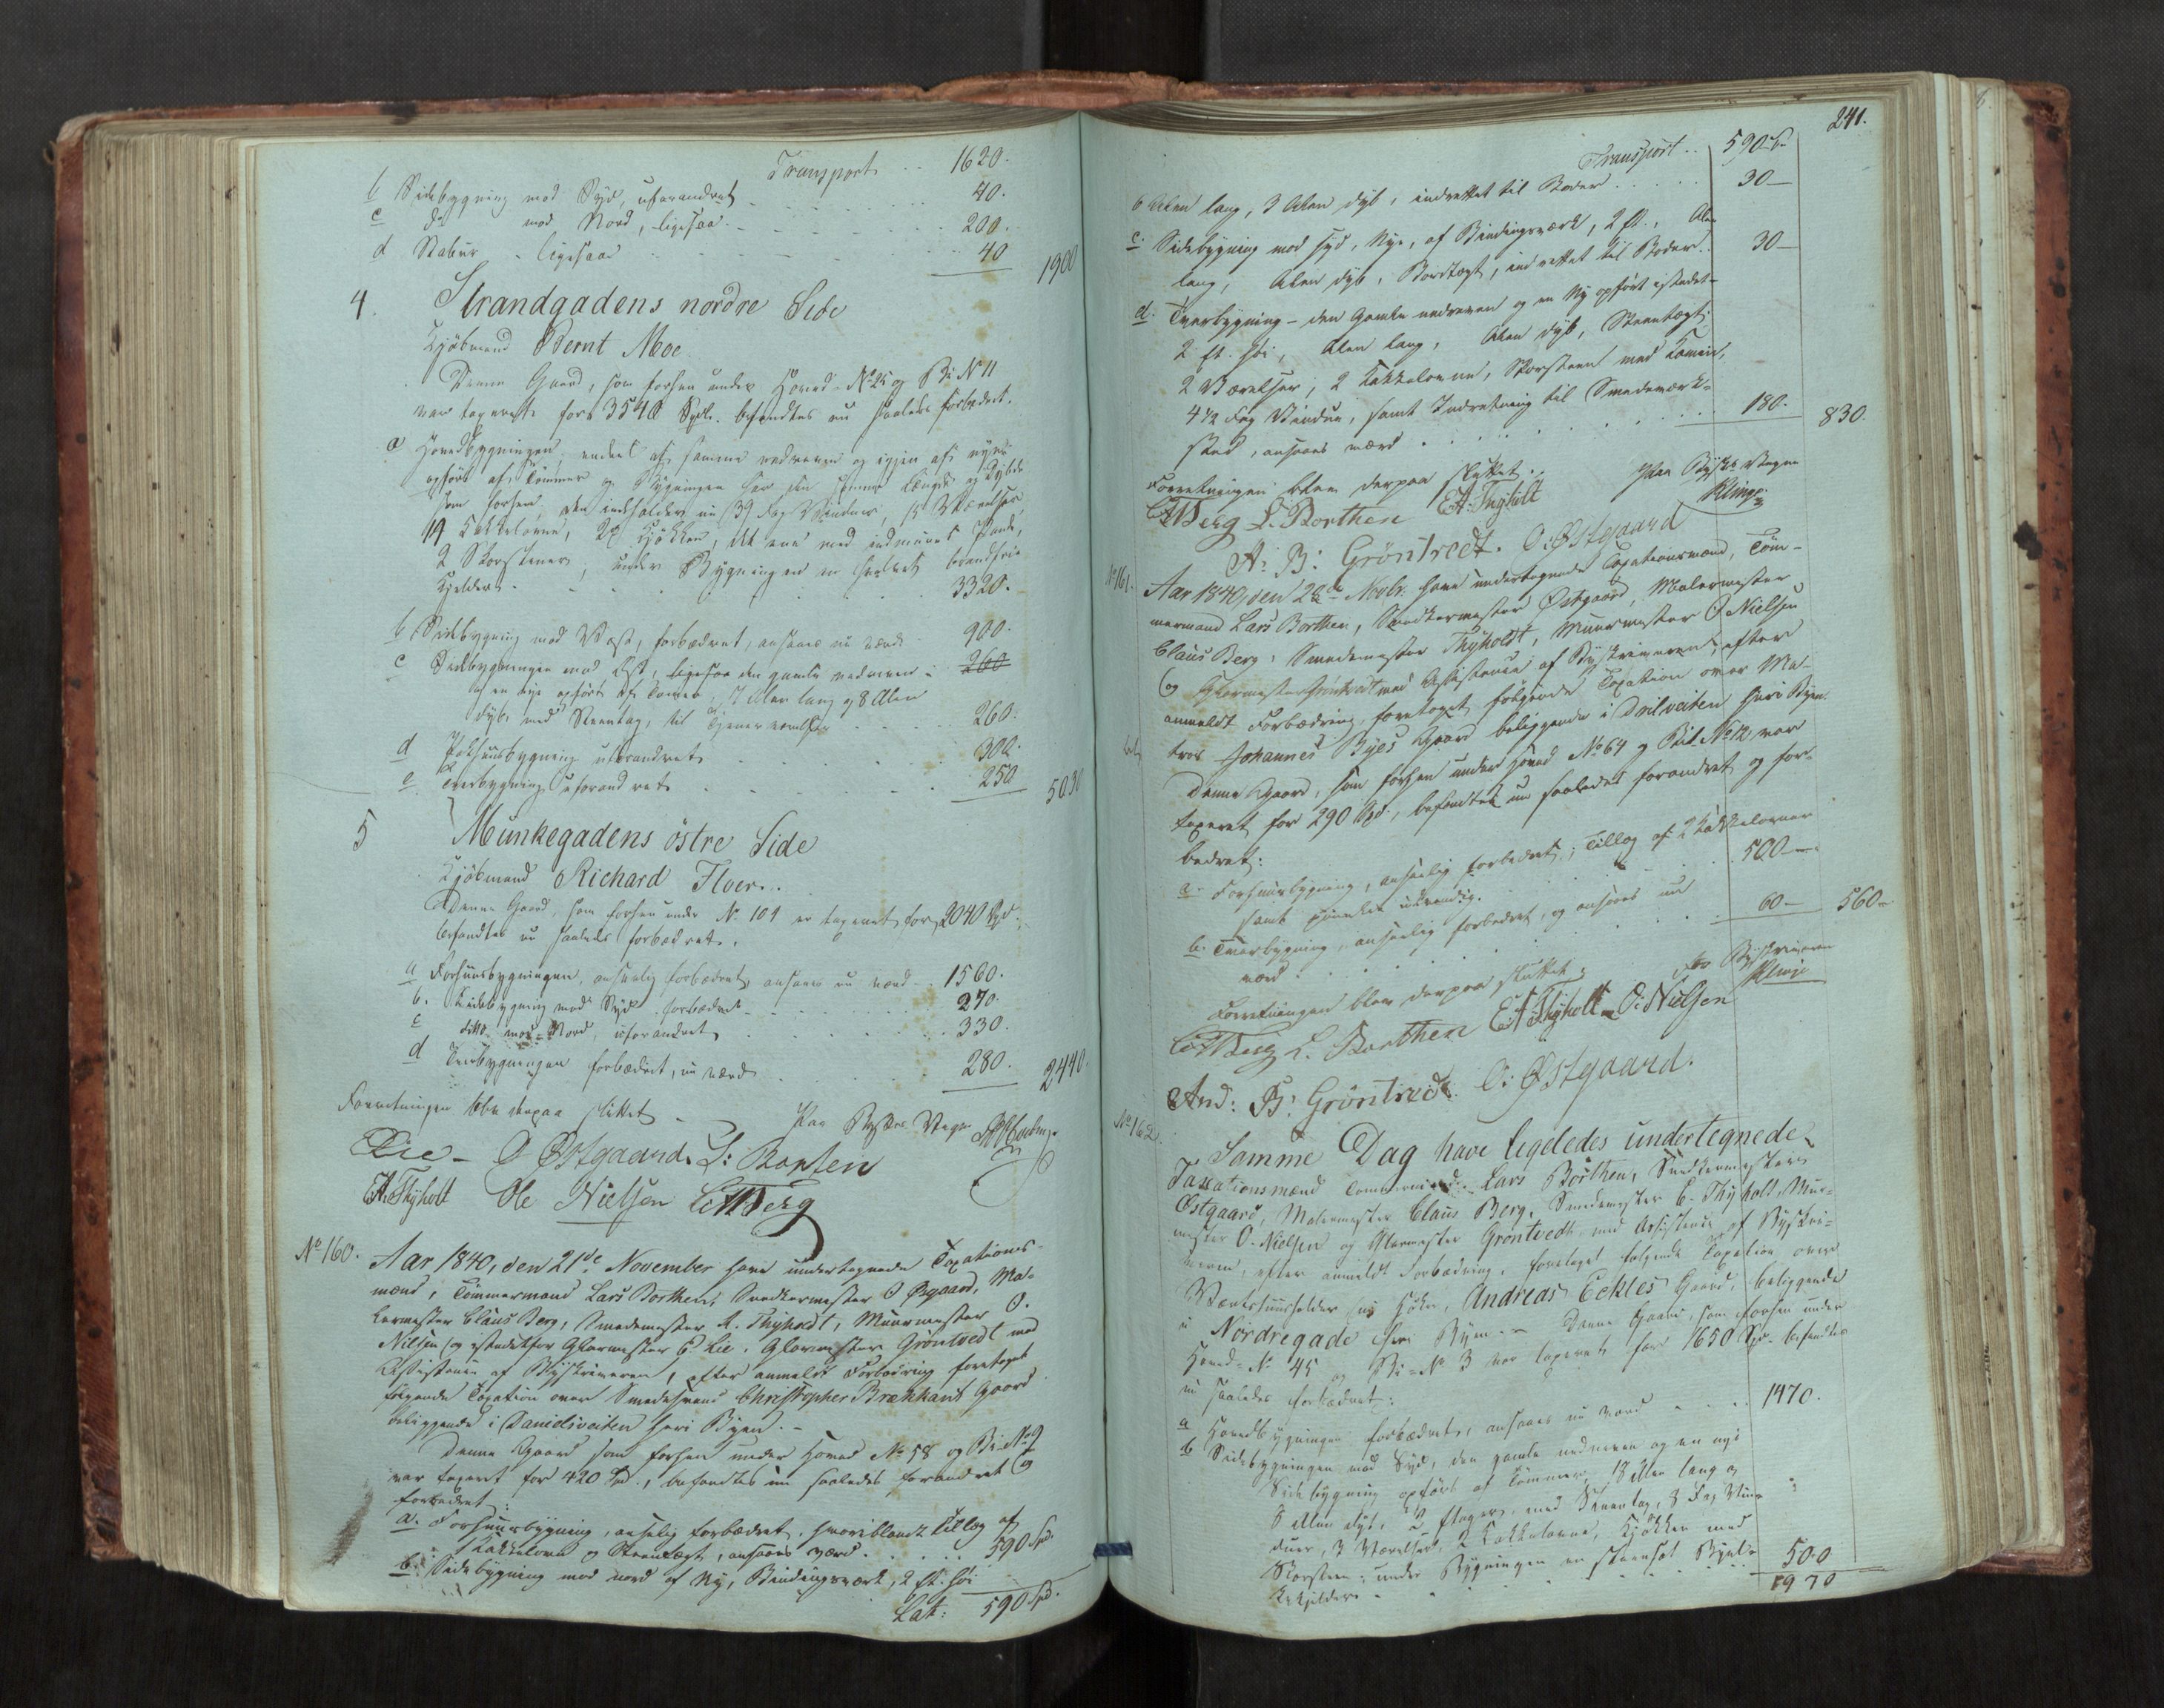 Transport . . 1620.
b Sidebygning mod Syd, uforandret . . . 40.
c do mod Nord, ligesaa . . . 200.
d Stabur - ligesaa . . . 40 1900
4. Strandgadens nordre Side
Kjøbmand Bernt Moe
Denne Gaard, som forhen under Hoved-No 25 og Bi No 11
var taxeret for 3540 Spd. befandtes nu saaledes forbedret.
a Hovedbygningen, endeel af samme nedreven og igjen af nyt
opført af Tømmer og Bygningen har sin samme Længde og Dybde
som forhen, den indeholder nu 39 Fag Vinduer, Værelser,
19 Kakkelovne, 2 Kjøkken, det ene med indmuret Pande,
2 Skorstene, under Bygningen er hvælvet brandfrie
Kjelder . . . 3320.
b Sidebygning mod Vest, forbedret, ansaaes nu værd 900.
c Sidebygningen mod Øst, ligesaa den gamle nedreven 260
og en nye opført af Tømmer, 7 Alen lang og 8 Alen
dyb, med Steentag, til . . . 260.
d Pakhuusbygning uforandret . . . 300.
e Tverbygning uforandret . . . 250 5030
5 Munkegadens östre Side
Kjøbmand Richard Floer.
Denne Gaard, som forhen under No 104 er taxeret for 2040 Spd.
befandtes nu saaledes forbedret.
a Forhuusbygningen, anseelig forbedret, ansaaes nu værd . . 1560.
b. Sidebygning mod Syd forbedret . . . 270.
c ditto mod Nord, uforandret . . . 330.
d Tverbygningen forbedret, nu værd . . . 280. 2440.
Forretningen blev derpaa sluttet
Paa Byskr. Vegne
Lie - O Østgaard. L: Borten
EA. Thyholt Ole Nielsen CMBerg
No 160. Aar 1840, den 21de November have undertegnede Taxations-
mænd, Tømmermand Lars Borthen, Snedkermester O Østgaard, Ma-
lermester Claus Berg, Smedemester A. Thyholdt, Muurmester O.
Nielsen og istedetfor Glarmester C Lie, Glarmester Gröntvedt med
Assistence af Byskriveren, efter anmeldt Forbedring foretaget
følgende Taxation over Smedesvend Christopher Brækhans Gaard
beliggende i Danielsveiten heri Byen. -
Denne Gaard som forhen under Hoved No 58 og Bi No 9
var taxeret for 420 Spd., befandtes nu saaledes forandret og
forbedret:
a. Forhuusbygning, anselig forbedret, hvoriblandt Tillæg af
Kakkelovn og Steentagt, ansaaes værd . . . 590 Spd.
b. Sidebygning mod nord af Ny, Bindingsværk, 2 Et. høi
Lat: 590 Spd.
241.
Transport . . 590 -
6 Alen lang, 3 Alen dyb, indrettet til Boder . . . 30 -
c. Sidebygning mod syd, Nye, af Bindingsværk, 2 Et., Alen
lang, Alen dyb, Bordtagt, indrettet til Boder . . 30 -
d. Tverbygning - den Gamle nedreven og en Ny opført istedet -
2 Et. høi, Alen lang, Alen dyb, Steentagt,
2 Værelser, 2 Kakkelovne, Skorsteen med Kamin,
4 1/2 Fag Vindue, samt Indretning til Smedeværk-
sted, ansaaes værd . . . 180. 830.
Forretningen blev derpaa sluttet. Paa Byskr. Vegne
Klinge
CMBerg L. Borthen EA. Thyholt
A: B: Gröntvedt. O: Østgaard
No 161. Aar 1840, den 28de Novbr. have undertegnede Taxationsmænd, Töm-
mermand Lars Borthen, Snedkermester Østgaard, Malermester
Claus Berg, Smedemester Thyholdt, Muurmester O Nielsen
og Glarmester Gröntvedt med Assistence af Byskriveren, efter
anmeldt Forbedring, foretaget følgende Taxation over Ma-
tros Johannes Byes Gaard beliggende i Drilveiten heri Byen.
Denne Gaard, som forhen under Hoved No 64 og Bi No 12 var
taxeret for 290 Spd., befandtes nu saaledes forandret og for-
bedret:
a. Forhuusbygning, anseelig forbedret, Tillæg af 2 Kakkelovne
samt udvendig. . . . 500 -
b. Tverbygning anseelig forbedret, og ansaaes nu
værd . . . 60 - 560 -
Forretningen blev derpaa sluttet. for Byskriveren
Klinge
CMBerg L. Borthen EA Thyholt O: Nielsen
And: B: Gröntvedt. O: Østgaard.
No 162. Samme Dag have ligeledes undertegnede
Taxationsmænd Tømmermand Lars Borthen, Snedkermester
Østgaard, Malermester Claus Berg, Smedemester E. Thyholt, Muur-
mester O. Nielsen og Glarmester Gröntvedt med Assistence af Byskri-
veren, efter anmeldt Forbedring, foretaget følgende Taxation over
Værtshuusholder og Høker, Andreas Eckles Gaard, beliggende
i Nordregade heri Byen. - Denne Gaard, som forhen under
Hoved-No 45 og Bi-No 3 var taxeret for 1650 Spd. befandtes
nu saaledes forbedret:
a Hovedbygningen forbedret, ansaaes nu værd . . . 1470.
b Sidebygningen mod Syd, den gamle nedreven og en nye
Sidebygning opført af Tømmer, 18 Alen lang og
8 Alen dyb, Etager med Steentag, 8 Fag Vin-
duer, 3 Værelser, 2 Kakkelovne, Kjøkken med
Skorsteen; under Bygningen en steensat
Kjelder . . . 500
1970